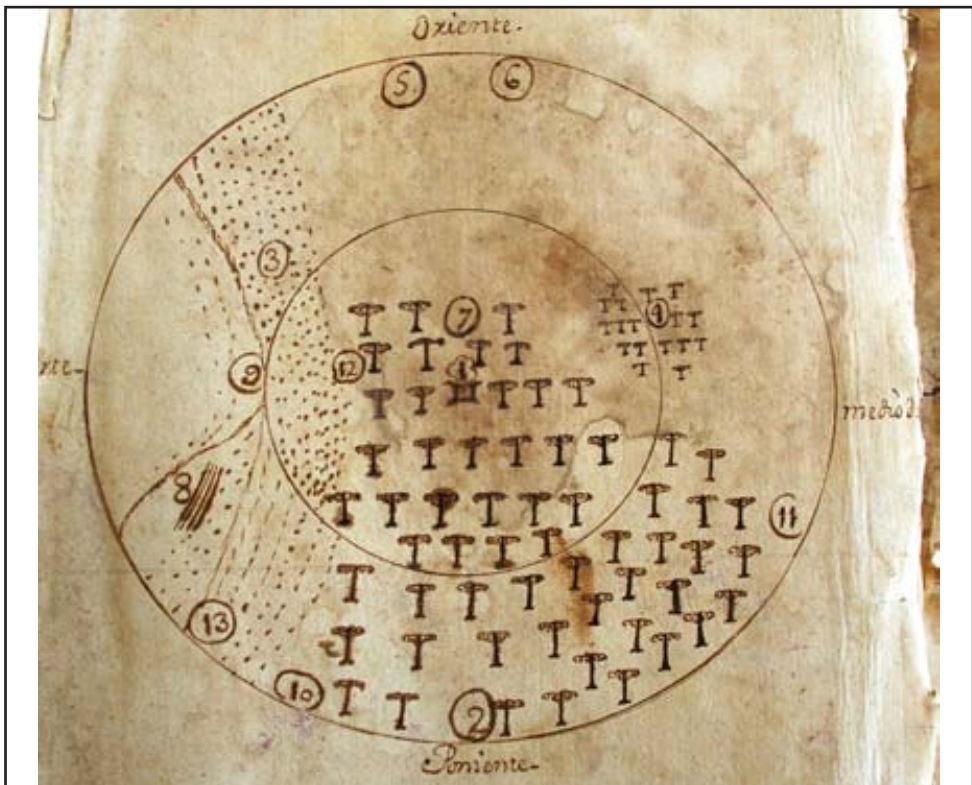 Oriente.
5 6
3
7 4
9 12 1
rte-
medio d
8
11
13
10 2
Poniente-